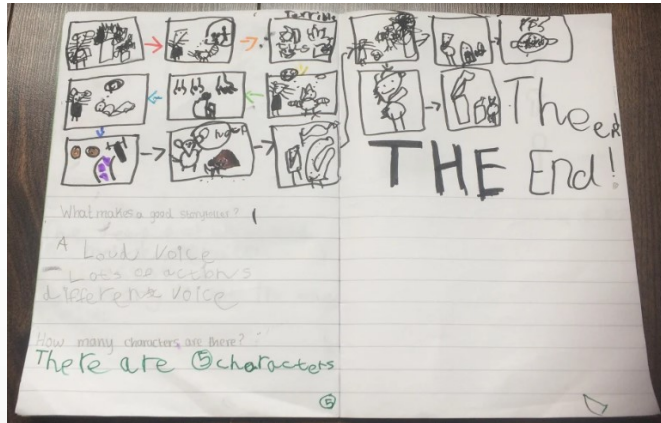 Terrible
The end
THE End!
What makes a good storyteller?
A Loud voice
Lots of actions
different voice
How many characters are there?
There are 5 characters
5